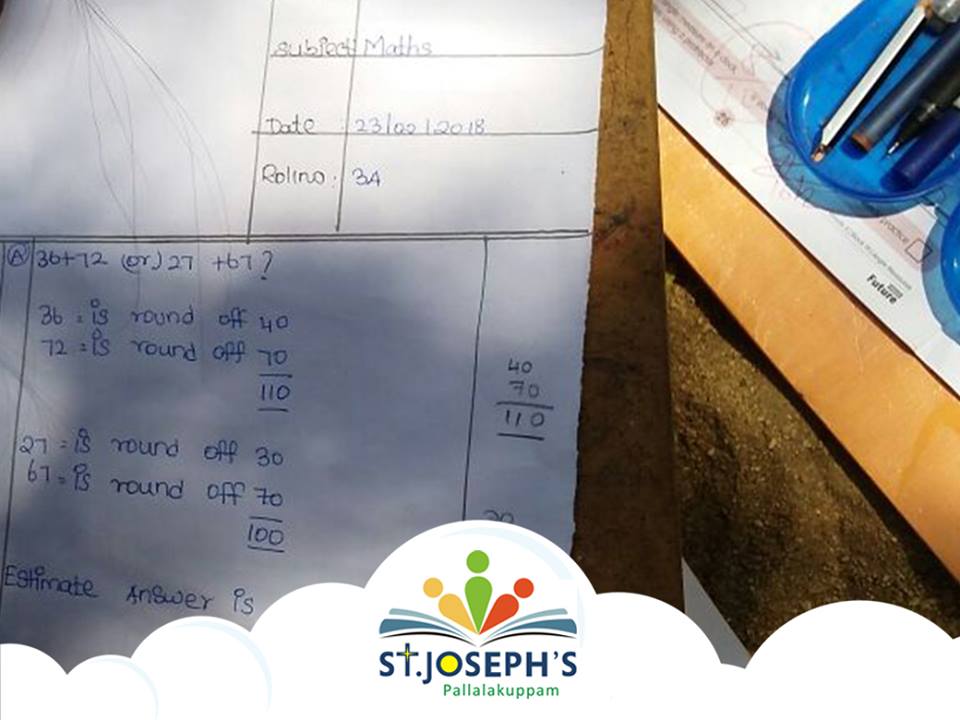 Subject Maths
Date : 23/02/2018
Rollno : 3A
(A) 36+72 (or) 27 +67 ?
36 = is round off 40
72 = is round off 70
110
27 = is round off 30
67 = is round off 70
100
Estimate Answer is
40
70
110
Practice
Future
ST.JOSEPH'S
Pallalakuppam